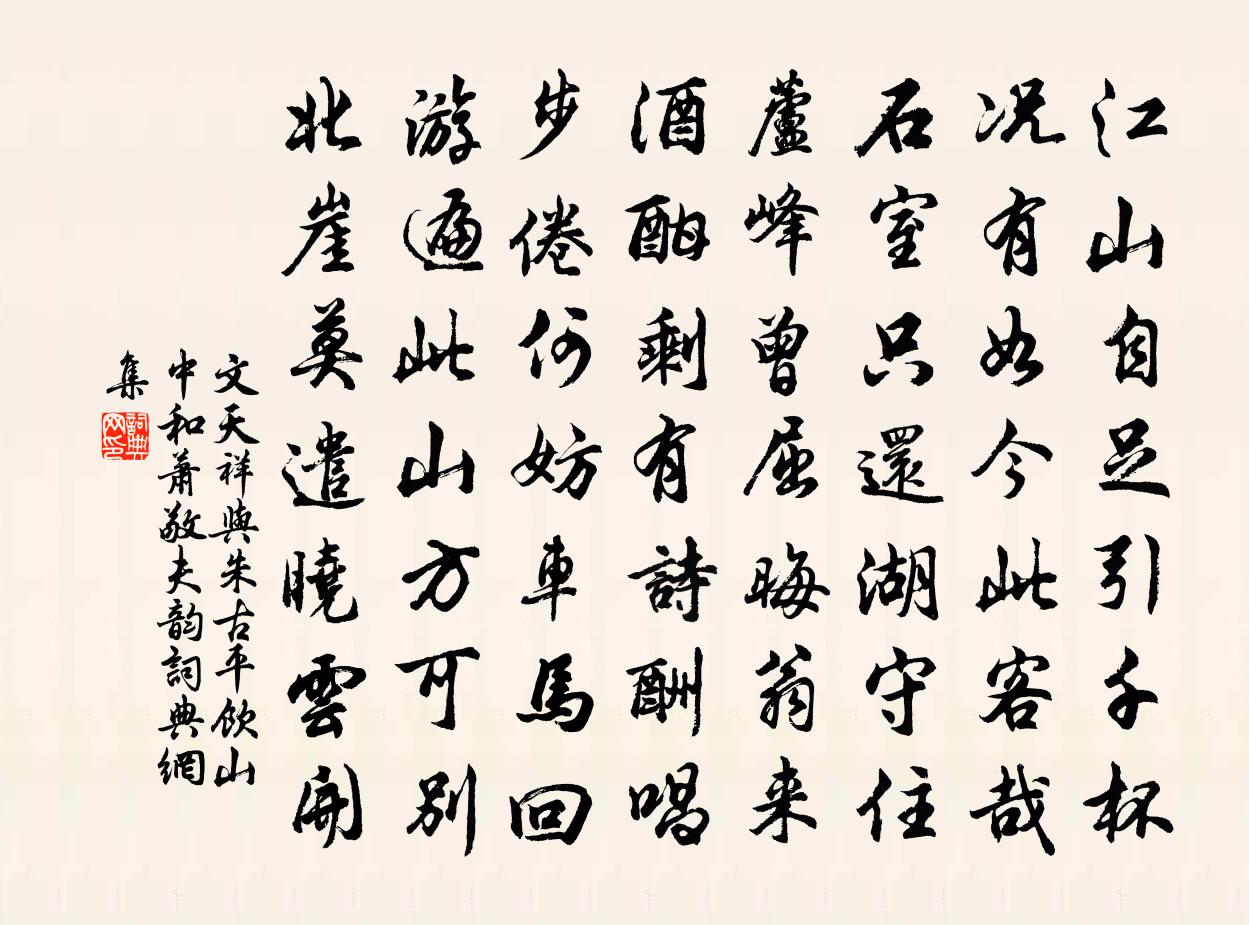 江山自足引千杯
况有如今此客哉
石室只還湖守住
蘆峰曾屈晦翁来
酒酣剩有詩酬唱
步倦何妨車馬回
游遍此山方可別
北崖莫遣曉雲開
文天祥與朱古平飲山
中和蕭敬夫韵詞典網
集
詞典
网印